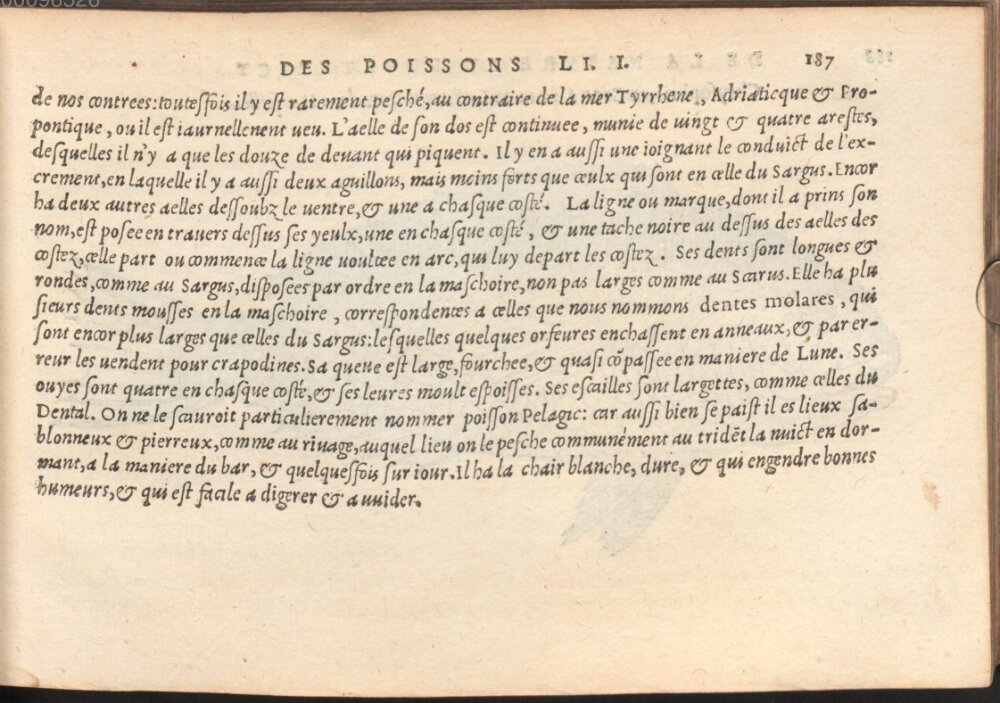 DES POISSONS LI. I. 187
de nos contrees: toutesfois il y est rarement pesché, au contraire de la mer Tyrrhene, Adriaticque & Pro-
pontique, ou il est iaurnellement ueu. L'aelle de son dos est continuee, munie de uingt & quatre arestes,
desquelles il n'y a que les douze de deuant qui piquent. Il y en a aussi une ioignant le conduict de l'ex-
crement, en laquelle il y a aussi deux aguillons, mais moins forts que ceulx qui sont en celle du Sargus. Encor
ha deux autres aelles dessoubz le uentre, & une a chasque costé. La ligne ou marque, dont il a prins son
nom, est posee en trauers dessus ses yeulx, une en chasque costé, & une tache noire au dessus des aelles des
costez, celle part ou commence la ligne uoultee en arc, qui luy depart les costez. Ses dents sont longues &
rondes, comme au Sargus, disposees par ordre en la maschoire, non pas larges comme au Scarus. Elle ha plu
sieurs dents mousses en la maschoire, correspondentes a celles que nous nommons dentes molares, qui
sont encor plus larges que celles du Sargus: lesquelles quelques orfeures enchassent en anneaux, & par er-
reur les uendent pour crapodines. Sa queue est large, fourchee, & quasi cōpassee en maniere de Lune. Ses
ouyes sont quatre en chasque costé, & ses leures moult espoisses. Ses escailles sont largettes, comme celles du
Dental. On ne le scauroit particulierement nommer poisson Pelagic: car aussi bien se paist il es lieux sa-
blonneux & pierreux, comme au riuage, auquel lieu on le pesche communément au tridēt la nuict en dor-
mant, a la maniere du bar, & quelquesfois sur iour. Il ha la chair blanche, dure, & qui engendre bonnes
humeurs, & qui est facile a digerer & a uuider.